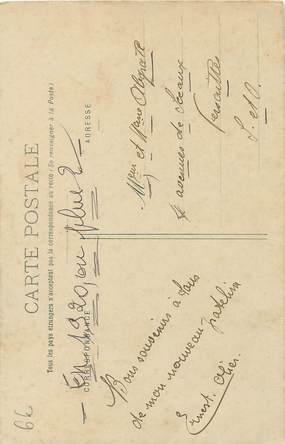 CARTE POSTALE
Tous les pays étrangers n'acceptent pas la correspondance au recto (Se renseigner à la Poste)
CORRESPONDANCE
ADRESSE
En 1920, ou plus
Bons souvenirs à tous
de mon nouveau
Ernest
et
avenue de Sceaux
Versailles
S. et O.
66